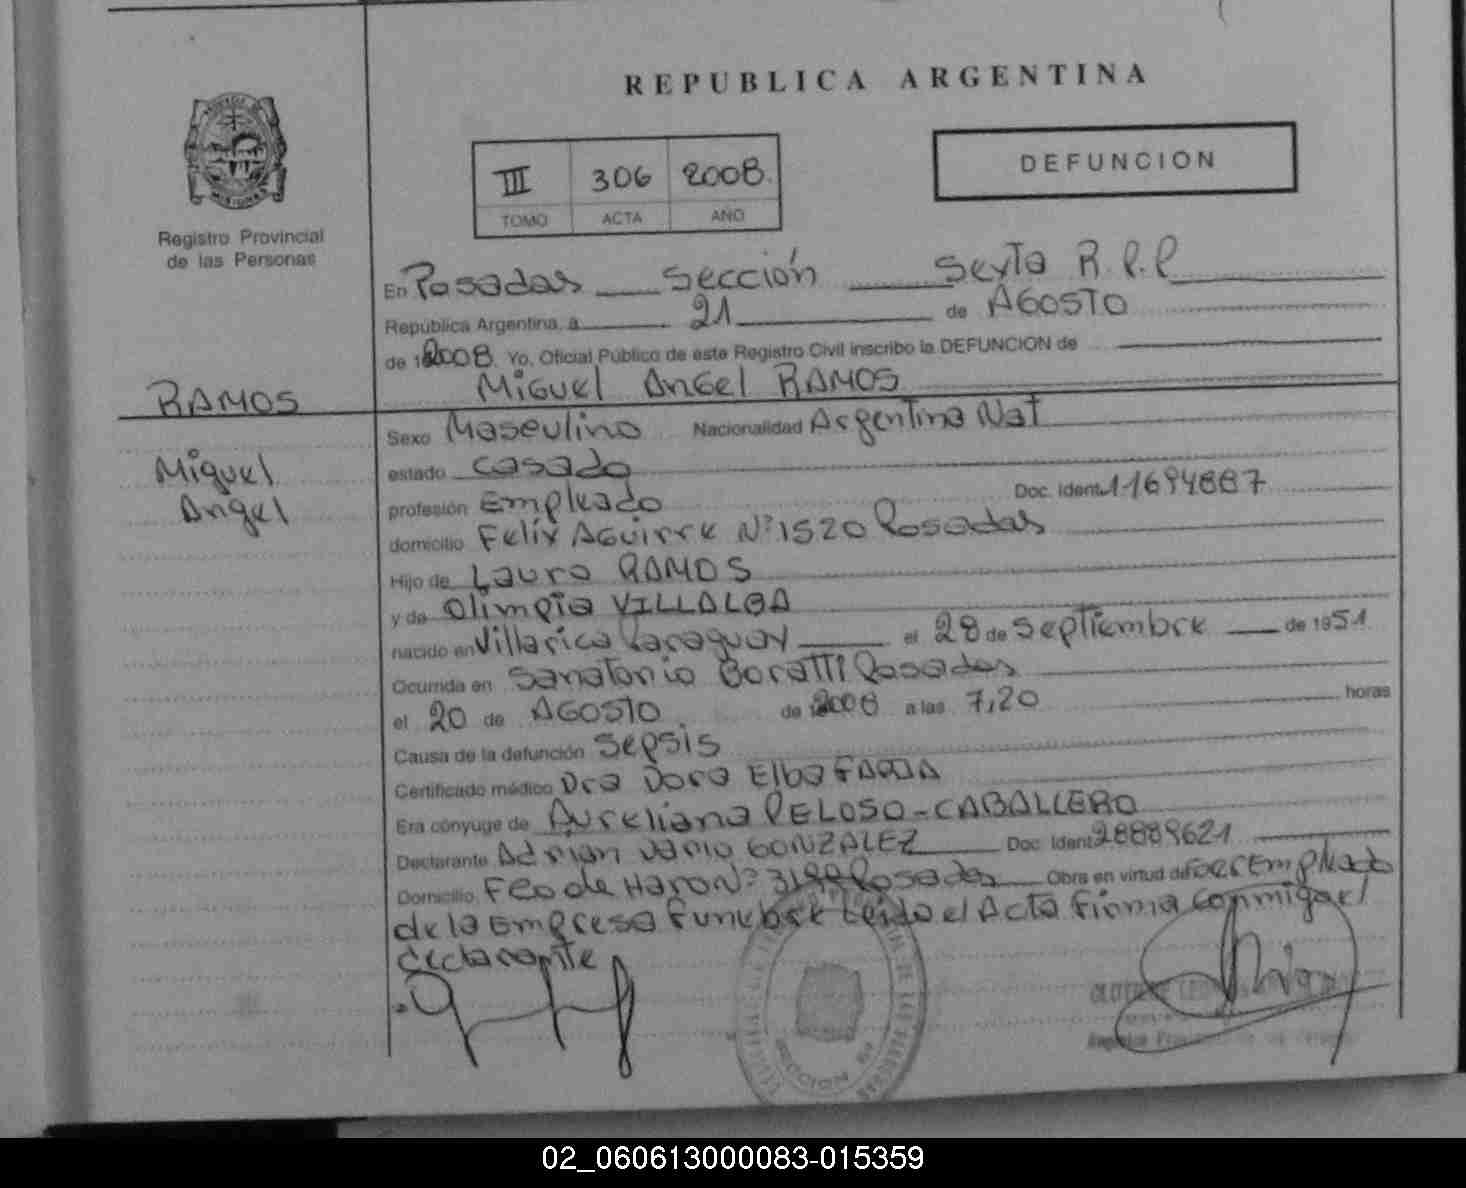 REPUBLICA ARGENTINA
III 306 2008
TOMO ACTA AÑO
DEFUNCION
Registro Provincial
de las Personas
En Posadas Sección Sexta R.P.P
República Argentina, a 21 de AGOSTO
de 12008 Yo, Oficial Público de este Registro Civil inscribo la DEFUNCION de
Miguel Angel RAMOS
RAMOS
Miguel
Angel
Sexo Masculino Nacionalidad Argentina Nat
estado casado
profesión Empleado Doc. Ident. 11694887
domicilio Felix Aguirre Nº 1520 Posadas
Hijo de Lauro RAMOS
y de Olimpia VILLALBA
nacido en Villarica Paraguay el 28 de septiembre de 1951
Ocurrida en Sanatorio Boratti Posadas
el 20 de AGOSTO de 2008 a las 7,20 horas
Causa de la defunción Sepsis
Certificado médico Dra Dora Elba FARIA
Era cónyuge de Aureliana PELOSO-CABALLERO
Declarante Adrian Dario GONZALEZ Doc. Ident. 28889621
Domicilio Feo de Haro Nº 3199 Posadas Obra en virtud de ser Empleado
de la Empresa Funebre Leido el Acta Firma conmigo el
declarante
02_060613000083-015359